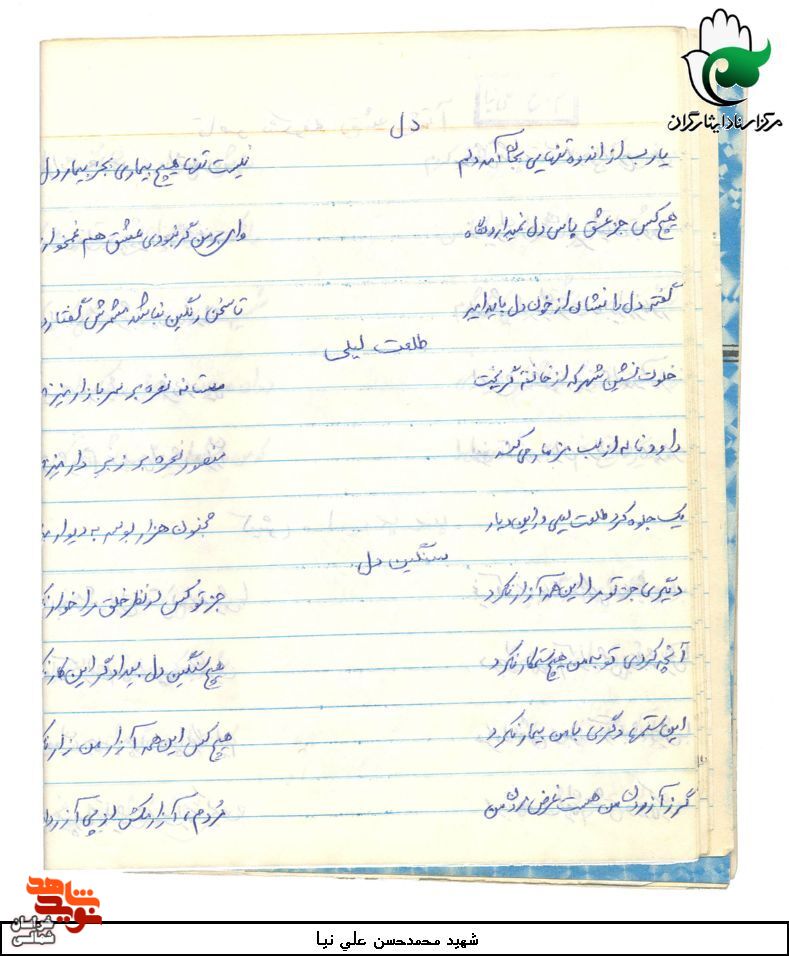 مرکز اسناد ایثارگران
دل
یارب از اندوه تنهایی بجان آمد دلم نیست تنها هیچ بیماری بجز بیمار دل
هیچ کس جز عشق پاس دل نمیدارد نگاه وای بر من گر نبودی عشق هم غمخوار
گفته دل را نشان از خون دل باید امیر تا سخن رنگین نباشد مشمرش گفتار د
طلعت لیلی
خلوت نشین شهر که از خانه گریخت مستانه نعره بر سر بازار میزند
داوود ناله از لب مزمار می‌کند منصور نعره بر زبر دار میزند
یک جلوه کرد طلعت لیلی در این دیار مجنون هزار بوسه به دیوار
سنگین دل
دیگری جز تو مرا این همه آزار نکرد جز تو کس در نظر خلق مرا خوار
آنچه کردی تو به من هیچ ستمکار نکرد هیچ سنگین دل بیدادگر این کار
این ستمها دگری با من بیمار نکرد هیچکس این همه آزار من زار
گر ز آزردن من هست غرض مردن من مُردم، آزار مکش از پی آزردن
نوید شاهد
خراسان شمالی
شهید محمدحسن علي نیا